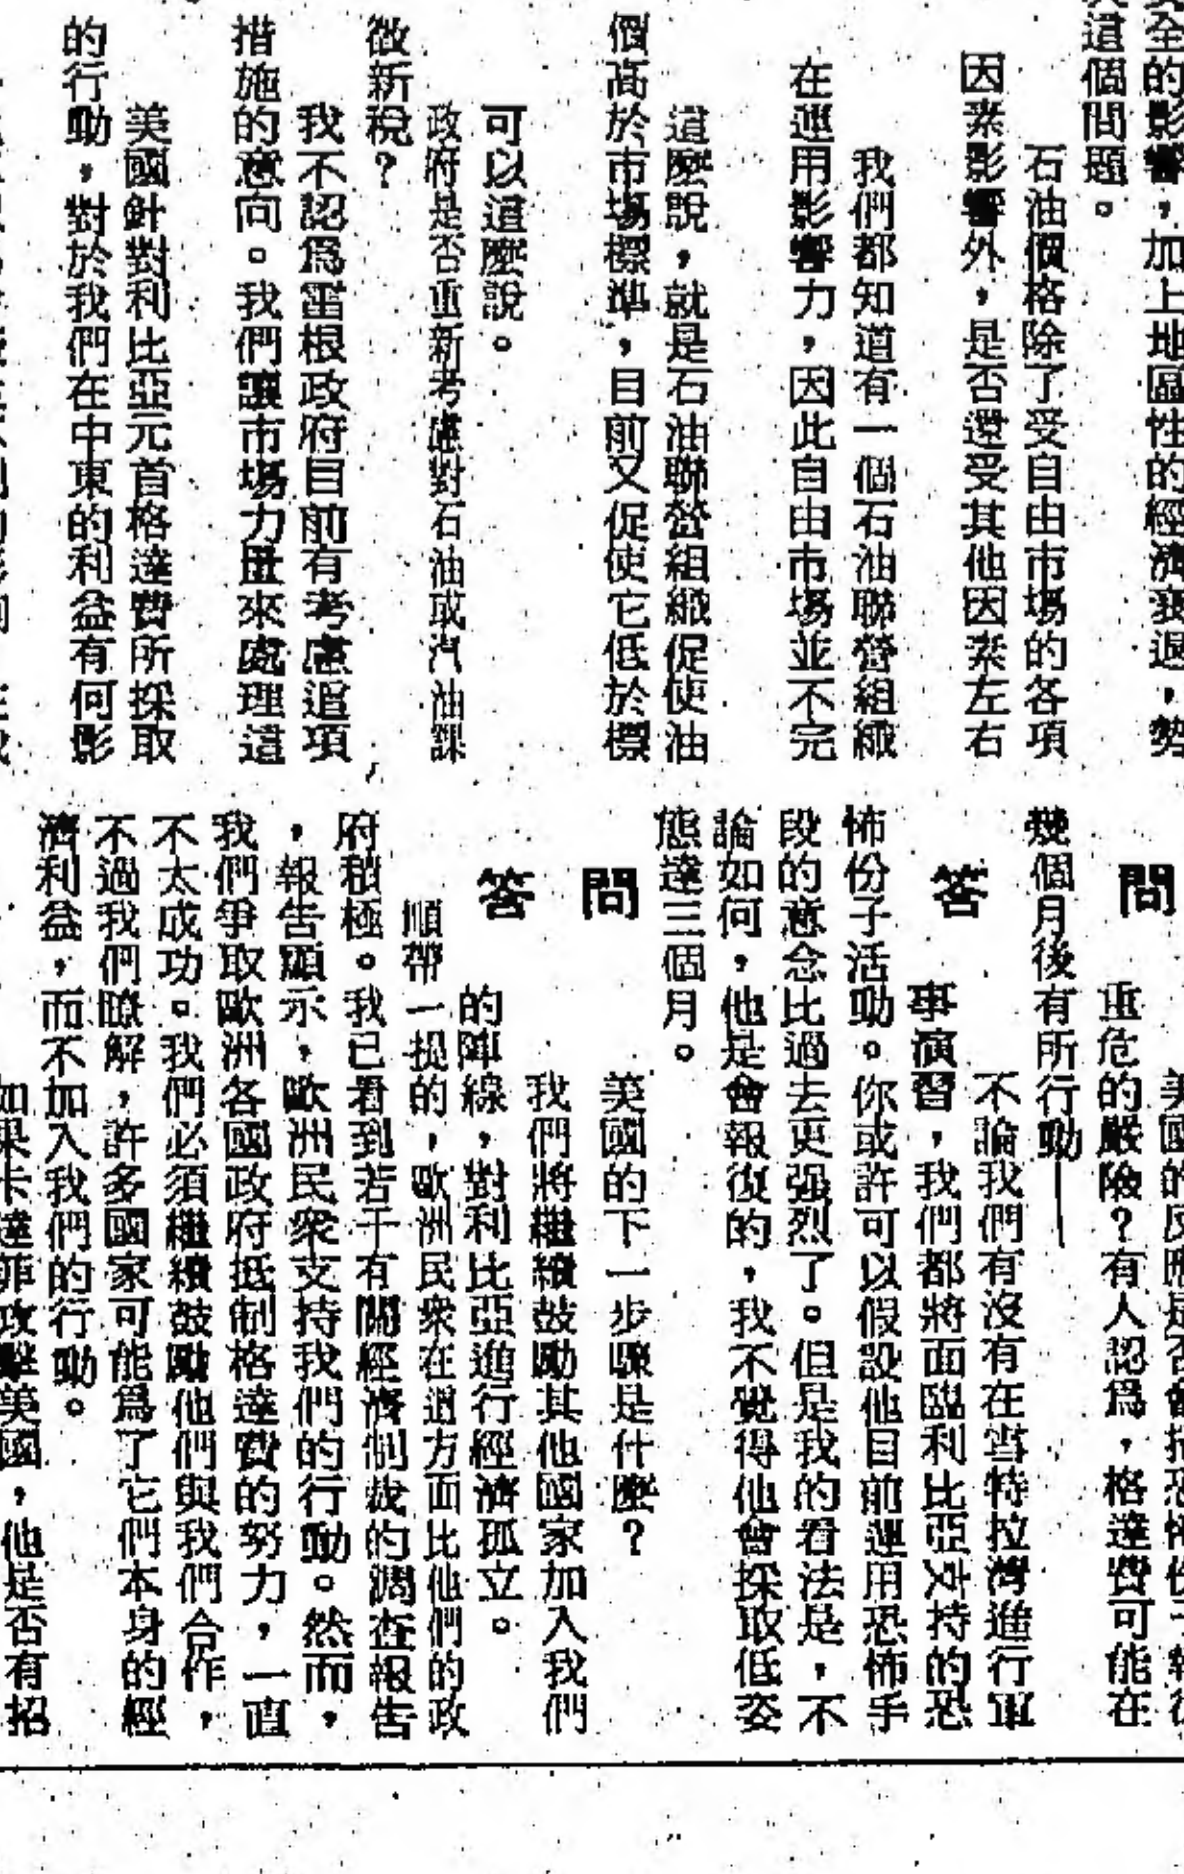 全的影響，加上地區性的經濟衰退，勢
這個問題。
石油價格除了受自由市場的各項
因素影響外，是否還受其他因素左右
我們都知道有一個石油聯營組織
在運用影響力，因此自由市場並不完
這麼說，就是石油聯營組織促使油
價高於市場標準，目前又促使它低於標
可以這麼說。
政府是否重新考慮對石油或汽油課
徵新稅？
我不認爲雷根政府目前有考慮這項
措施的意向。我們讓市場力量來處理這
美國針對利比亞元首格達費所採取
的行動，對於我們在中東的利益有何影
美國的反應是否會招恐怖份子報復
問
重危的嚴險？有人認爲，格達費可能在
幾個月後有所行動——
不論我們有沒有在雪特拉灣進行軍
答
事演習，我們都將面臨利比亞支持的恐
怖份子活動。你或許可以假設他目前運用恐怖手
段的意念比過去更强烈了。但是我的看法是，不
論如何，他是會報復的，我不覺得他會採取低姿
態達三個月。
問
美國的下一步驟是什麼？
答
我們將繼續鼓勵其他國家加入我們
的陣線，對利比亞進行經濟孤立。
順帶一提的，歐洲民衆在這方面比他們的政
府積極。我已看到若干有關經濟制裁的調查報告
，報告顯示，歐洲民衆支持我們的行動。然而，
我們爭取歐洲各國政府抵制格達費的努力，一直
不太成功。我們必須繼續鼓勵他們與我們合作，
不過我們瞭解，許多國家可能爲了它們本身的經
濟利益，而不加入我們的行動。
如果卡達菲攻擊美國，他是否有招